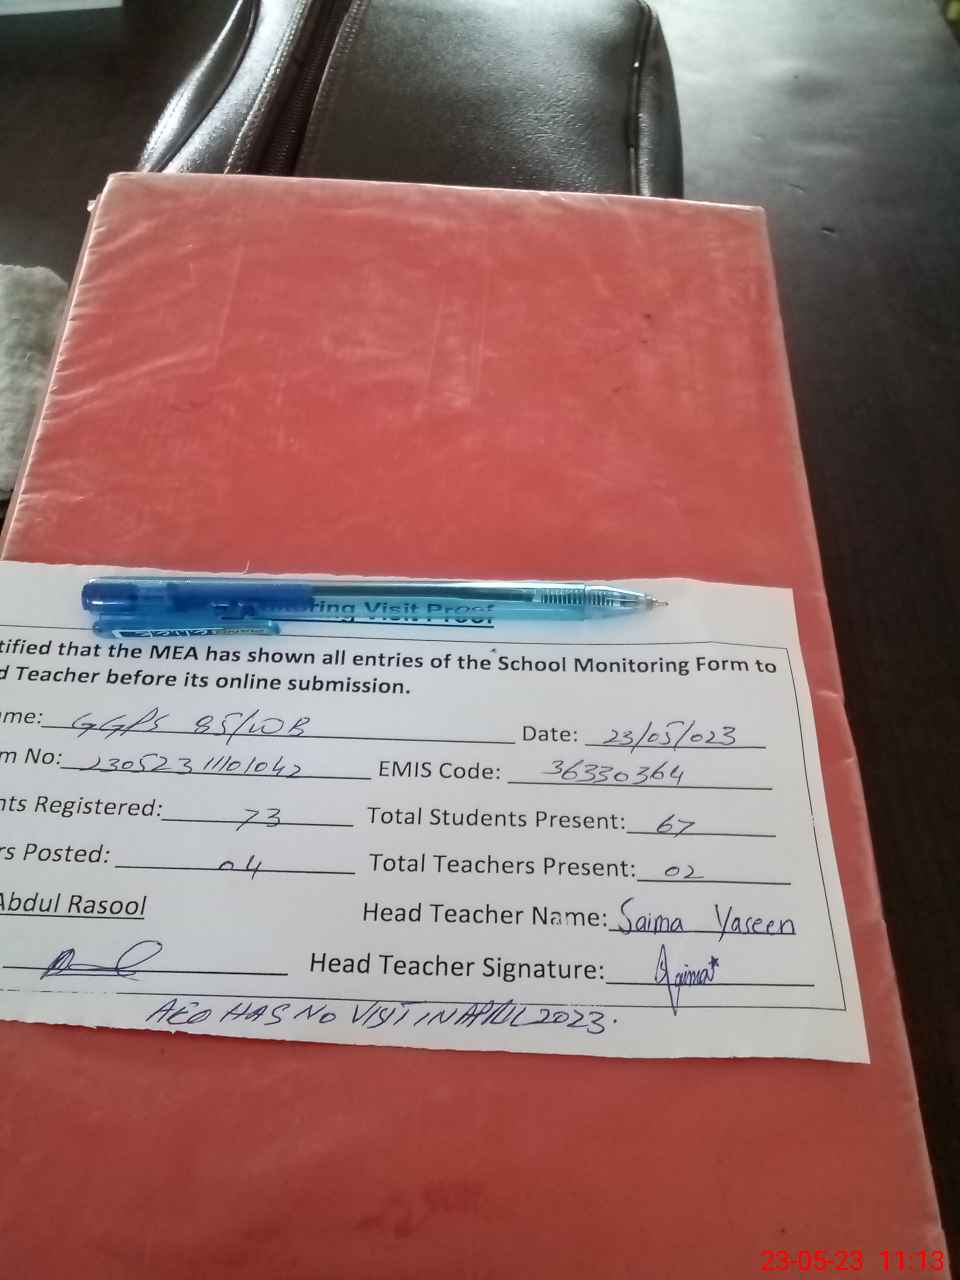 ring Visit Proof
tified that the MEA has shown all entries of the School Monitoring Form to
d Teacher before its online submission.
ame: GGPS 85/WB Date: 23/05/023
m No: 230523 11101042 EMIS Code: 36330364
nts Registered: 73 Total Students Present: 67
rs Posted: 04 Total Teachers Present: 02
Abdul Rasool Head Teacher Name: Saima Yaseen
Head Teacher Signature: Saima
AEO HAS NO VISIT IN APRIL 2023.
23-05-23 11:13